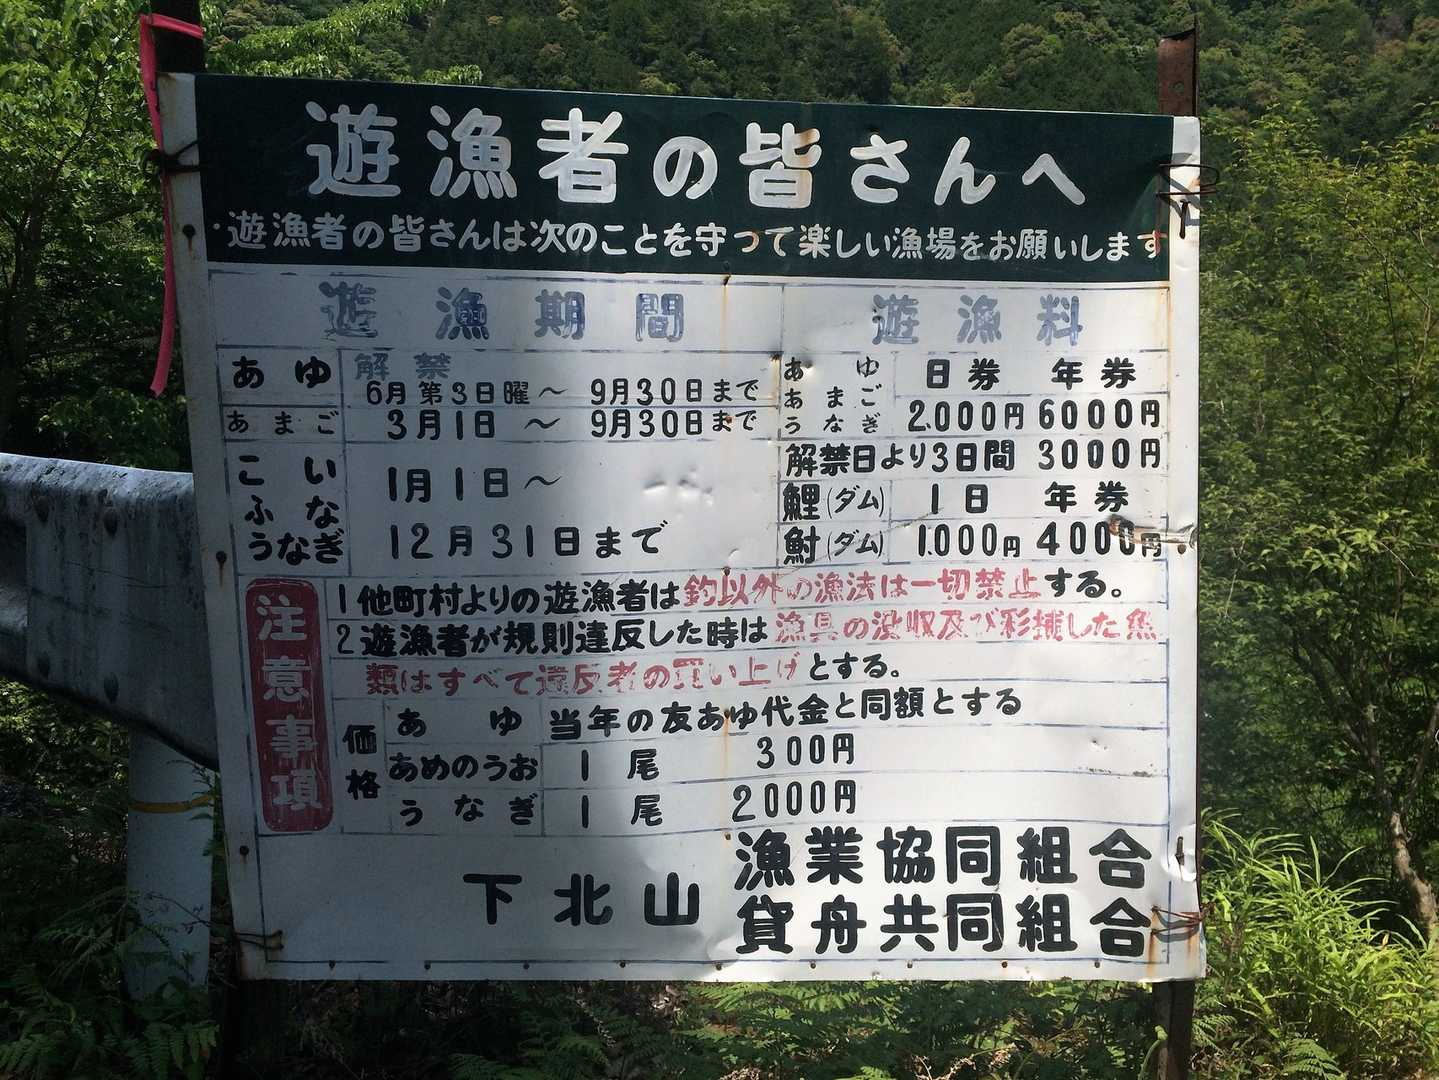 遊漁者の皆さんへ
・遊漁者の皆さんは次のことを守って楽しい漁場をお願いします
遊漁期間
あゆ 解禁 6月第3日曜～9月30日まで
あまご 3月1日～9月30日まで
こい ふな うなぎ 1月1日～
12月31日まで
遊漁料
あゆ あまご うなぎ 日券 年券
2.000円 6000円
解禁日より3日間 3000円
鯉(ダム) 1日 年券
鮒(ダム) 1.000円 4000円
注意事項
1他町村よりの遊漁者は釣以外の漁法は一切禁止する。
2遊漁者が規則違反した時は漁具の没収及び彩捕した魚
類はすべて違反者の買い上げとする。
価格
あゆ 当年の友あゆ代金と同額とする
あめのうお 1尾 300円
うなぎ 1尾 2000円
下北山 漁業協同組合
貸舟共同組合